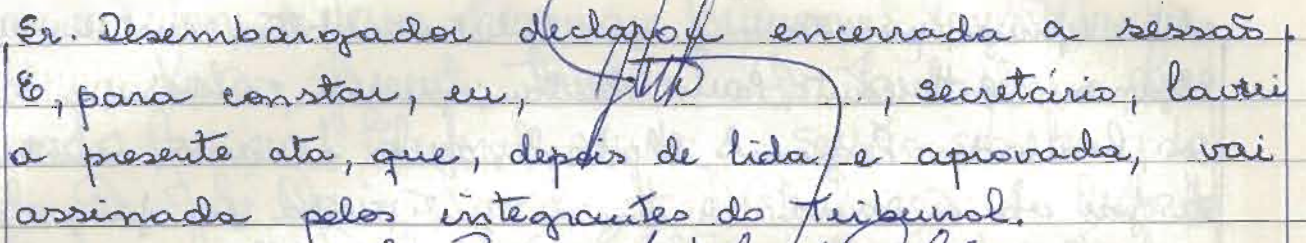 Sr. Desembargador declarou encerrada a sessão.
E, para constar, eu, , secretário, lavrei
a presente ata, que, depois de lida e aprovada, vai
assinada pelos integrantes do Tribunal.